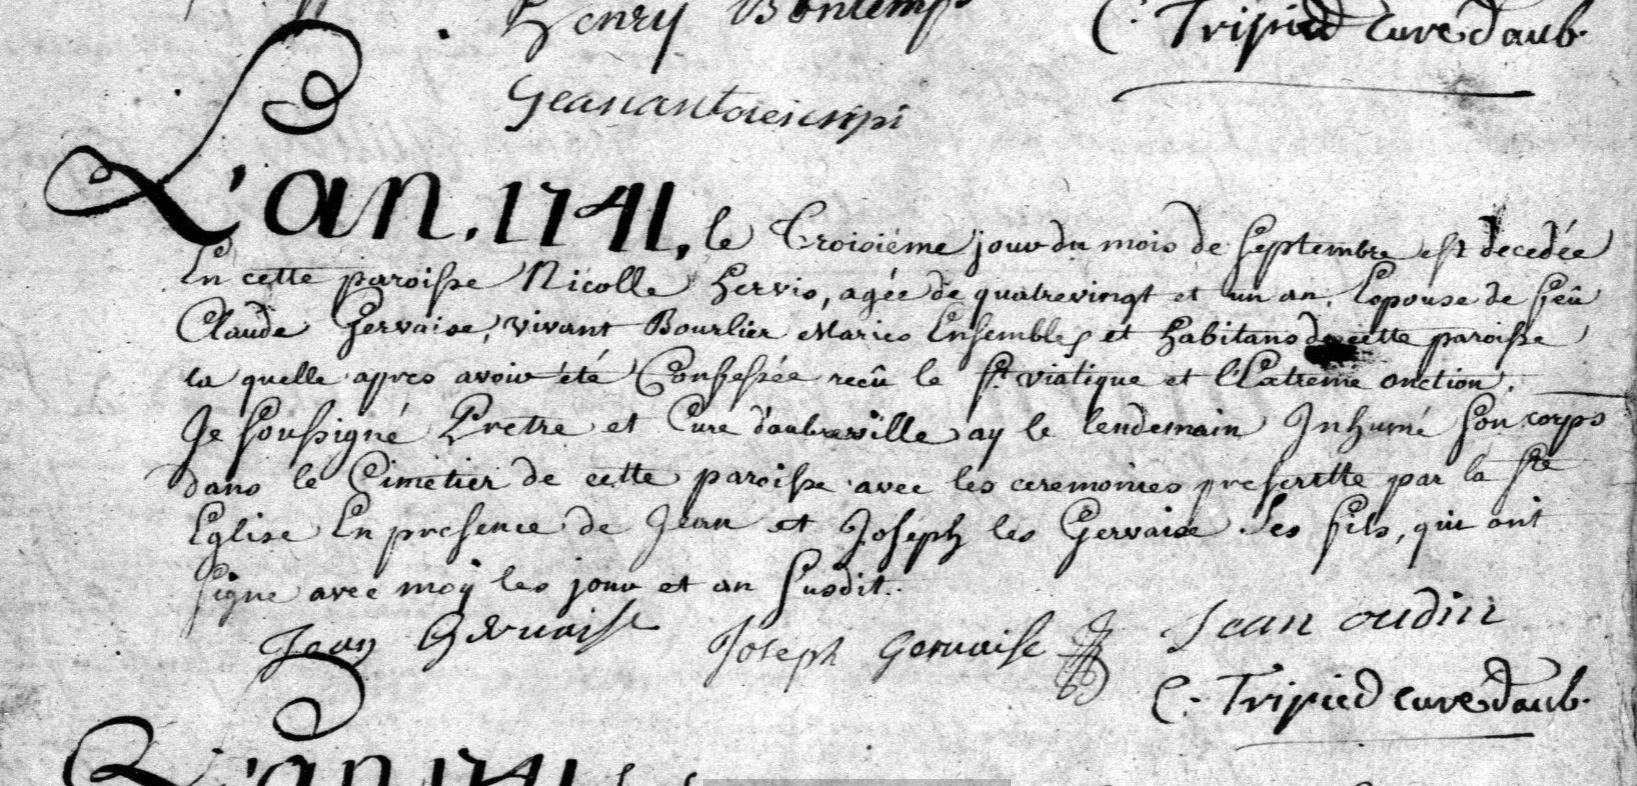 Henry Bontemps
C. Tripied curé d'aub.
L'an. 1741, le Troisiéme jour du mois de septembre est decedée
En cette paroisse Nicolle hervis, agée de quatrevingt et un an. Epouse de feû
Claude Gervaise, vivant Bourlier Maries Ensembles et habitans de cette paroisse
la quelle apres avoir été Confessée recû le st. viatique et l'Extreme onction.
Je soussigné Pretre et Curé d'aubreville ay le lendemain Inhumé son corps
dans le Cimetier de cette paroisse avec les ceremonies prescritte par la ste
Eglise En presence de Jean et Joseph les Gervaise ses fils, qui ont
signe avec moy les jour et an susdit.
Jean Gervaise Joseph Gervaise Jean oudin
C. Tripied curé d'aub.
L'an 1741